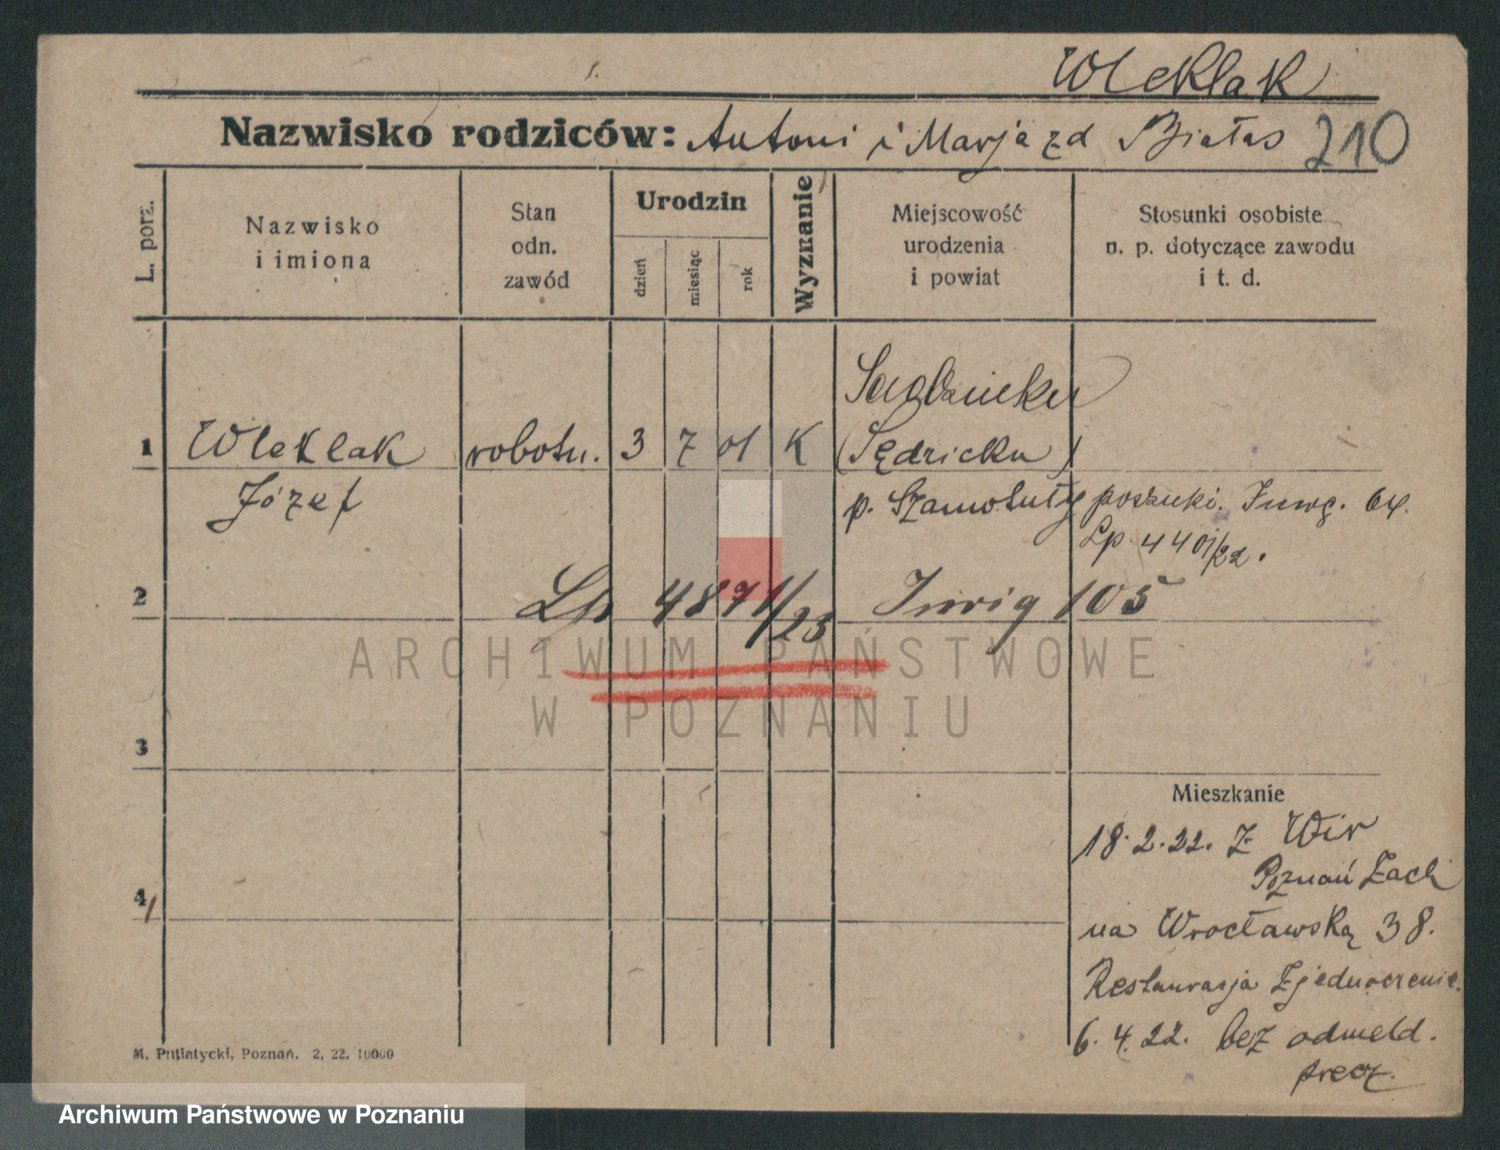 Wleklak
Nazwisko rodziców: Antoni i Marja zd Białas 210
L. porz.
Nazwisko
i imiona
Stan
odn.
zawód
Urodzin
dzień
miesiąc
rok
Wyznanie
Miejscowość
urodzenia
i powiat
Stosunki osobiste
n. p. dotyczące zawodu
i t. d.
1 Wleklak robotn. 3 7 01 K
(Sędzicku)
Józef
p. Szamotuły poszuki. Inwg. 64.
Lp. 4401/22.
2 Lp 4871/23 Inwig 105
ARCHIWUM PAŃSTWOWE
W POZNANIU
3
Mieszkanie
18.2.22. z Wir
Poznań Zach
4 na Wrocławską 38.
Restauracja Zjednoczenie.
6.4.22. bez odmeld.
precz.
M. Putiatycki, Poznań. 2, 22. 10000
Archiwum Państwowe w Poznaniu